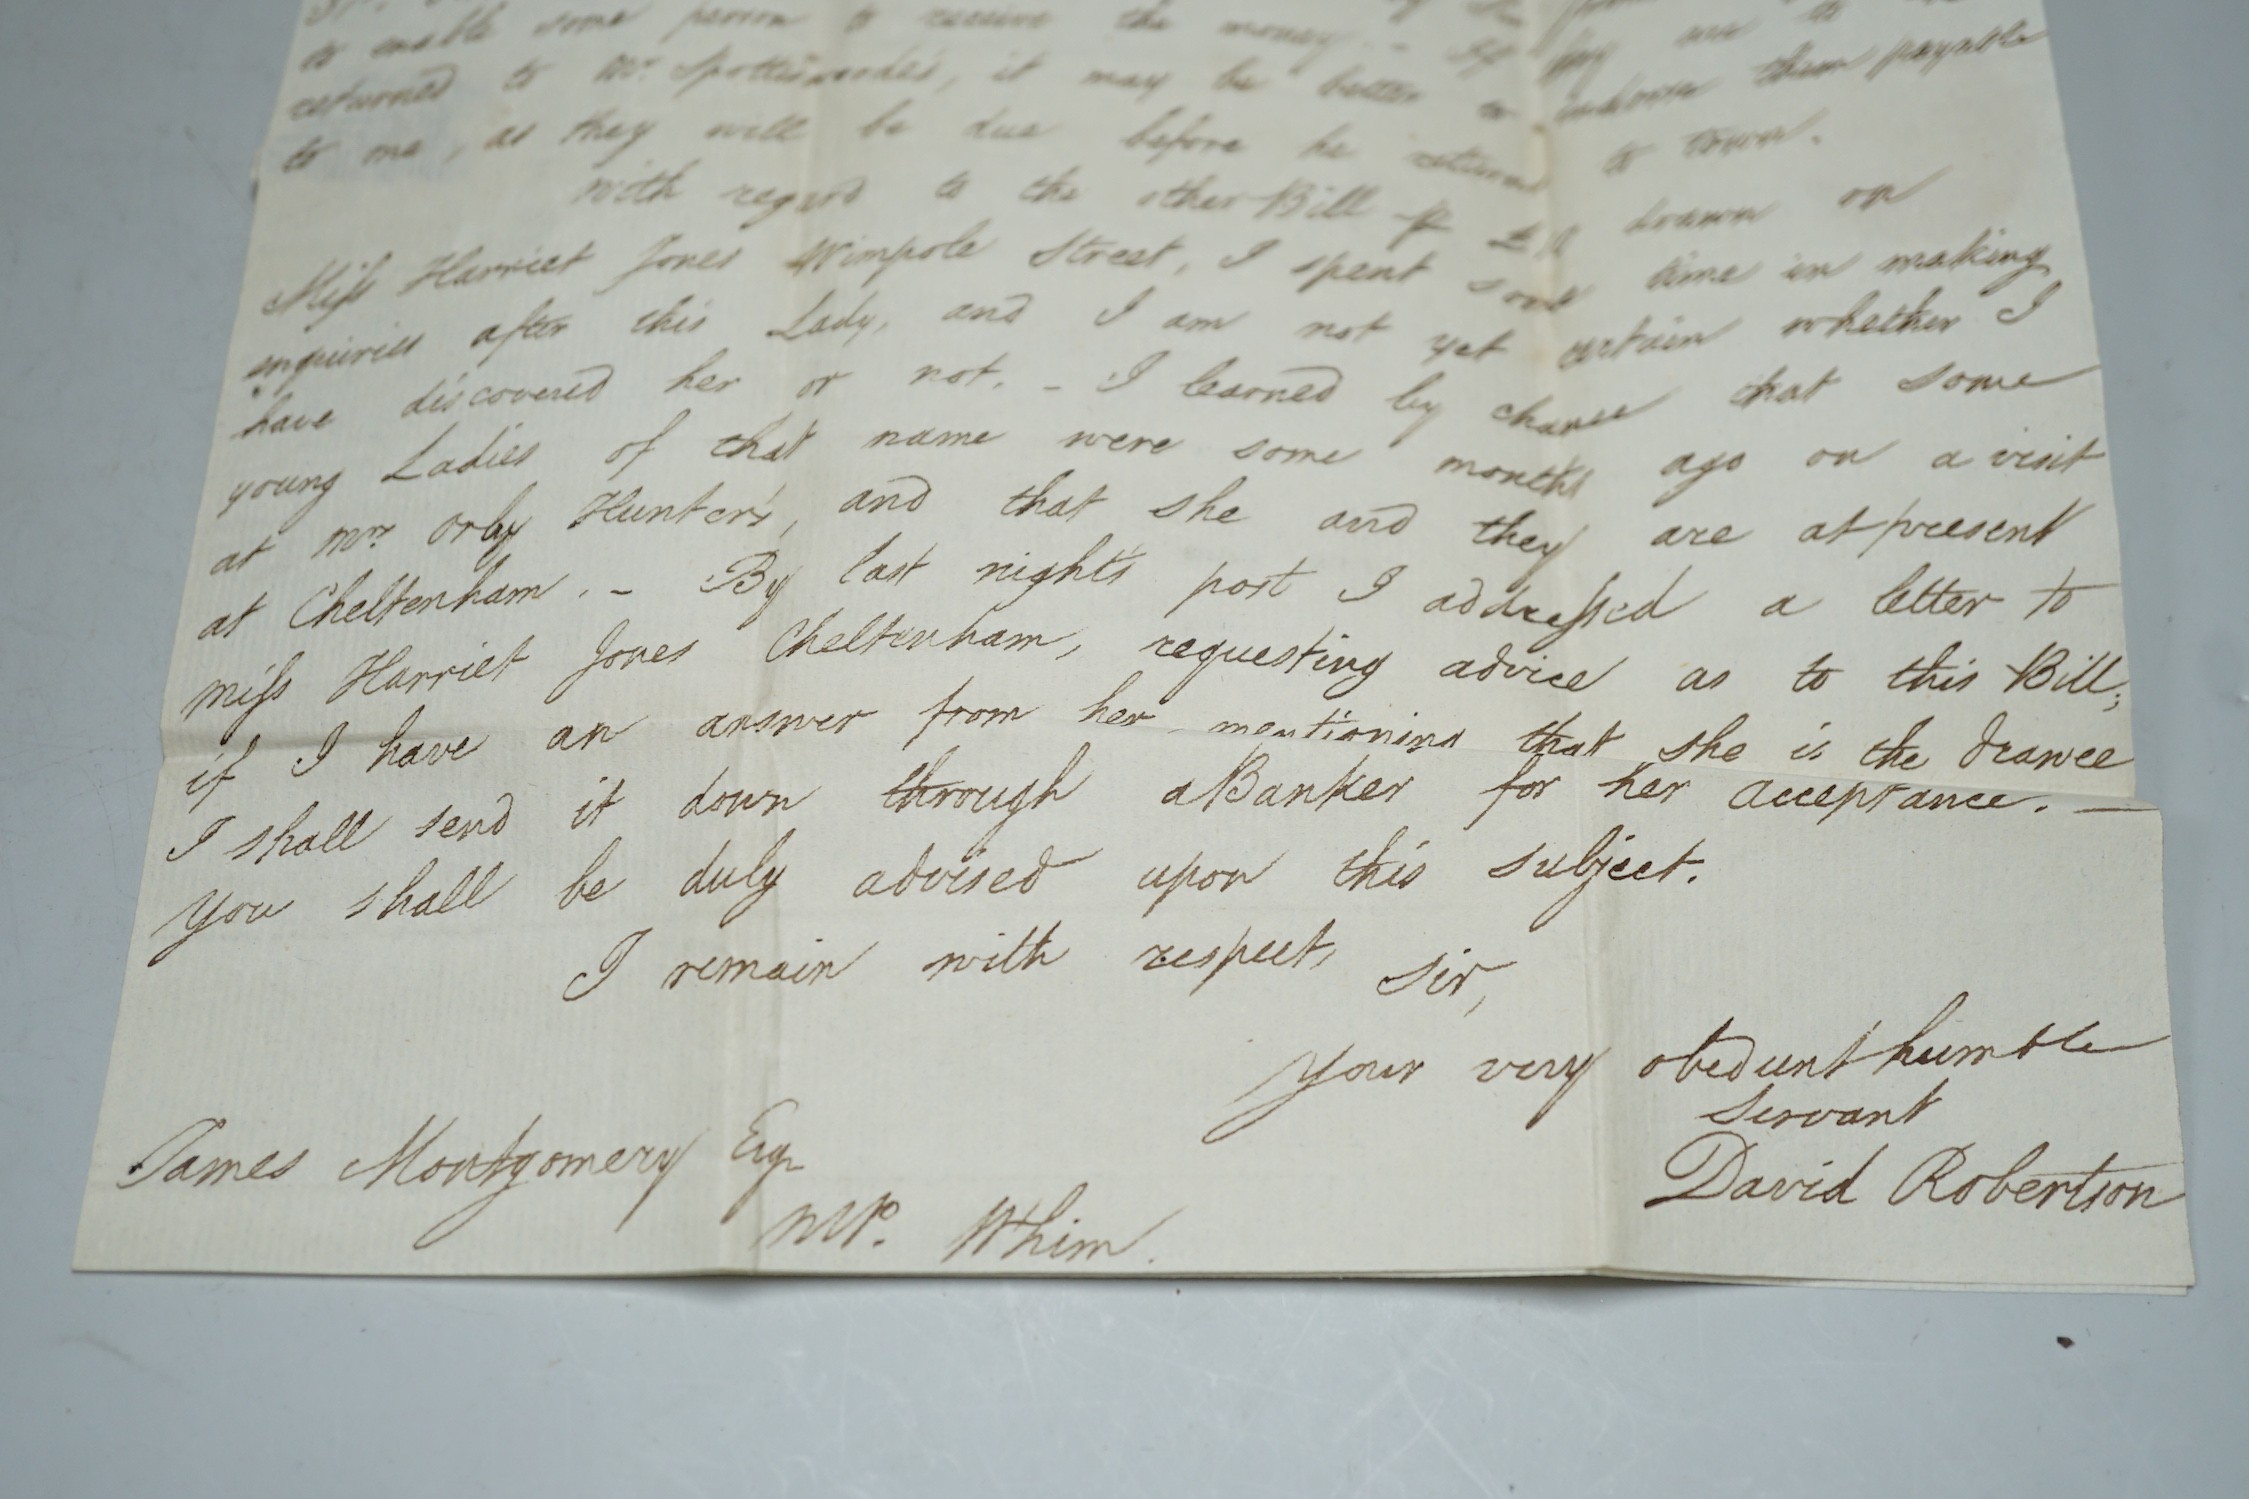 to enable some person to receive the money. - If they are to be
returned to Mr Spottiswoode's, it may be better to indorse them payable
to me, as they will be due before he returns to town.
With regard to the other Bill drawn on
Miss Harriet Jones Wimpole Street, I spent some time in making
enquiries after this Lady, and I am not yet certain whether I
have discovered her or not. - I learned by chance that some
young Ladies of that name were some months ago on a visit
at Mrs Orby Hunter's, and that she and they are at present
at Cheltenham. - By last night's post I addressed a letter to
Miss Harriet Jones Cheltenham, requesting advice as to this Bill;
if I have an answer from her mentioning that she is the drawee
I shall send it down through a Banker for her acceptance. -
You shall be duly advised upon this subject.
I remain with respect, Sir,
Your very obedient humble
Servant
David Robertson
James Montgomery Esq
MP. Whim.